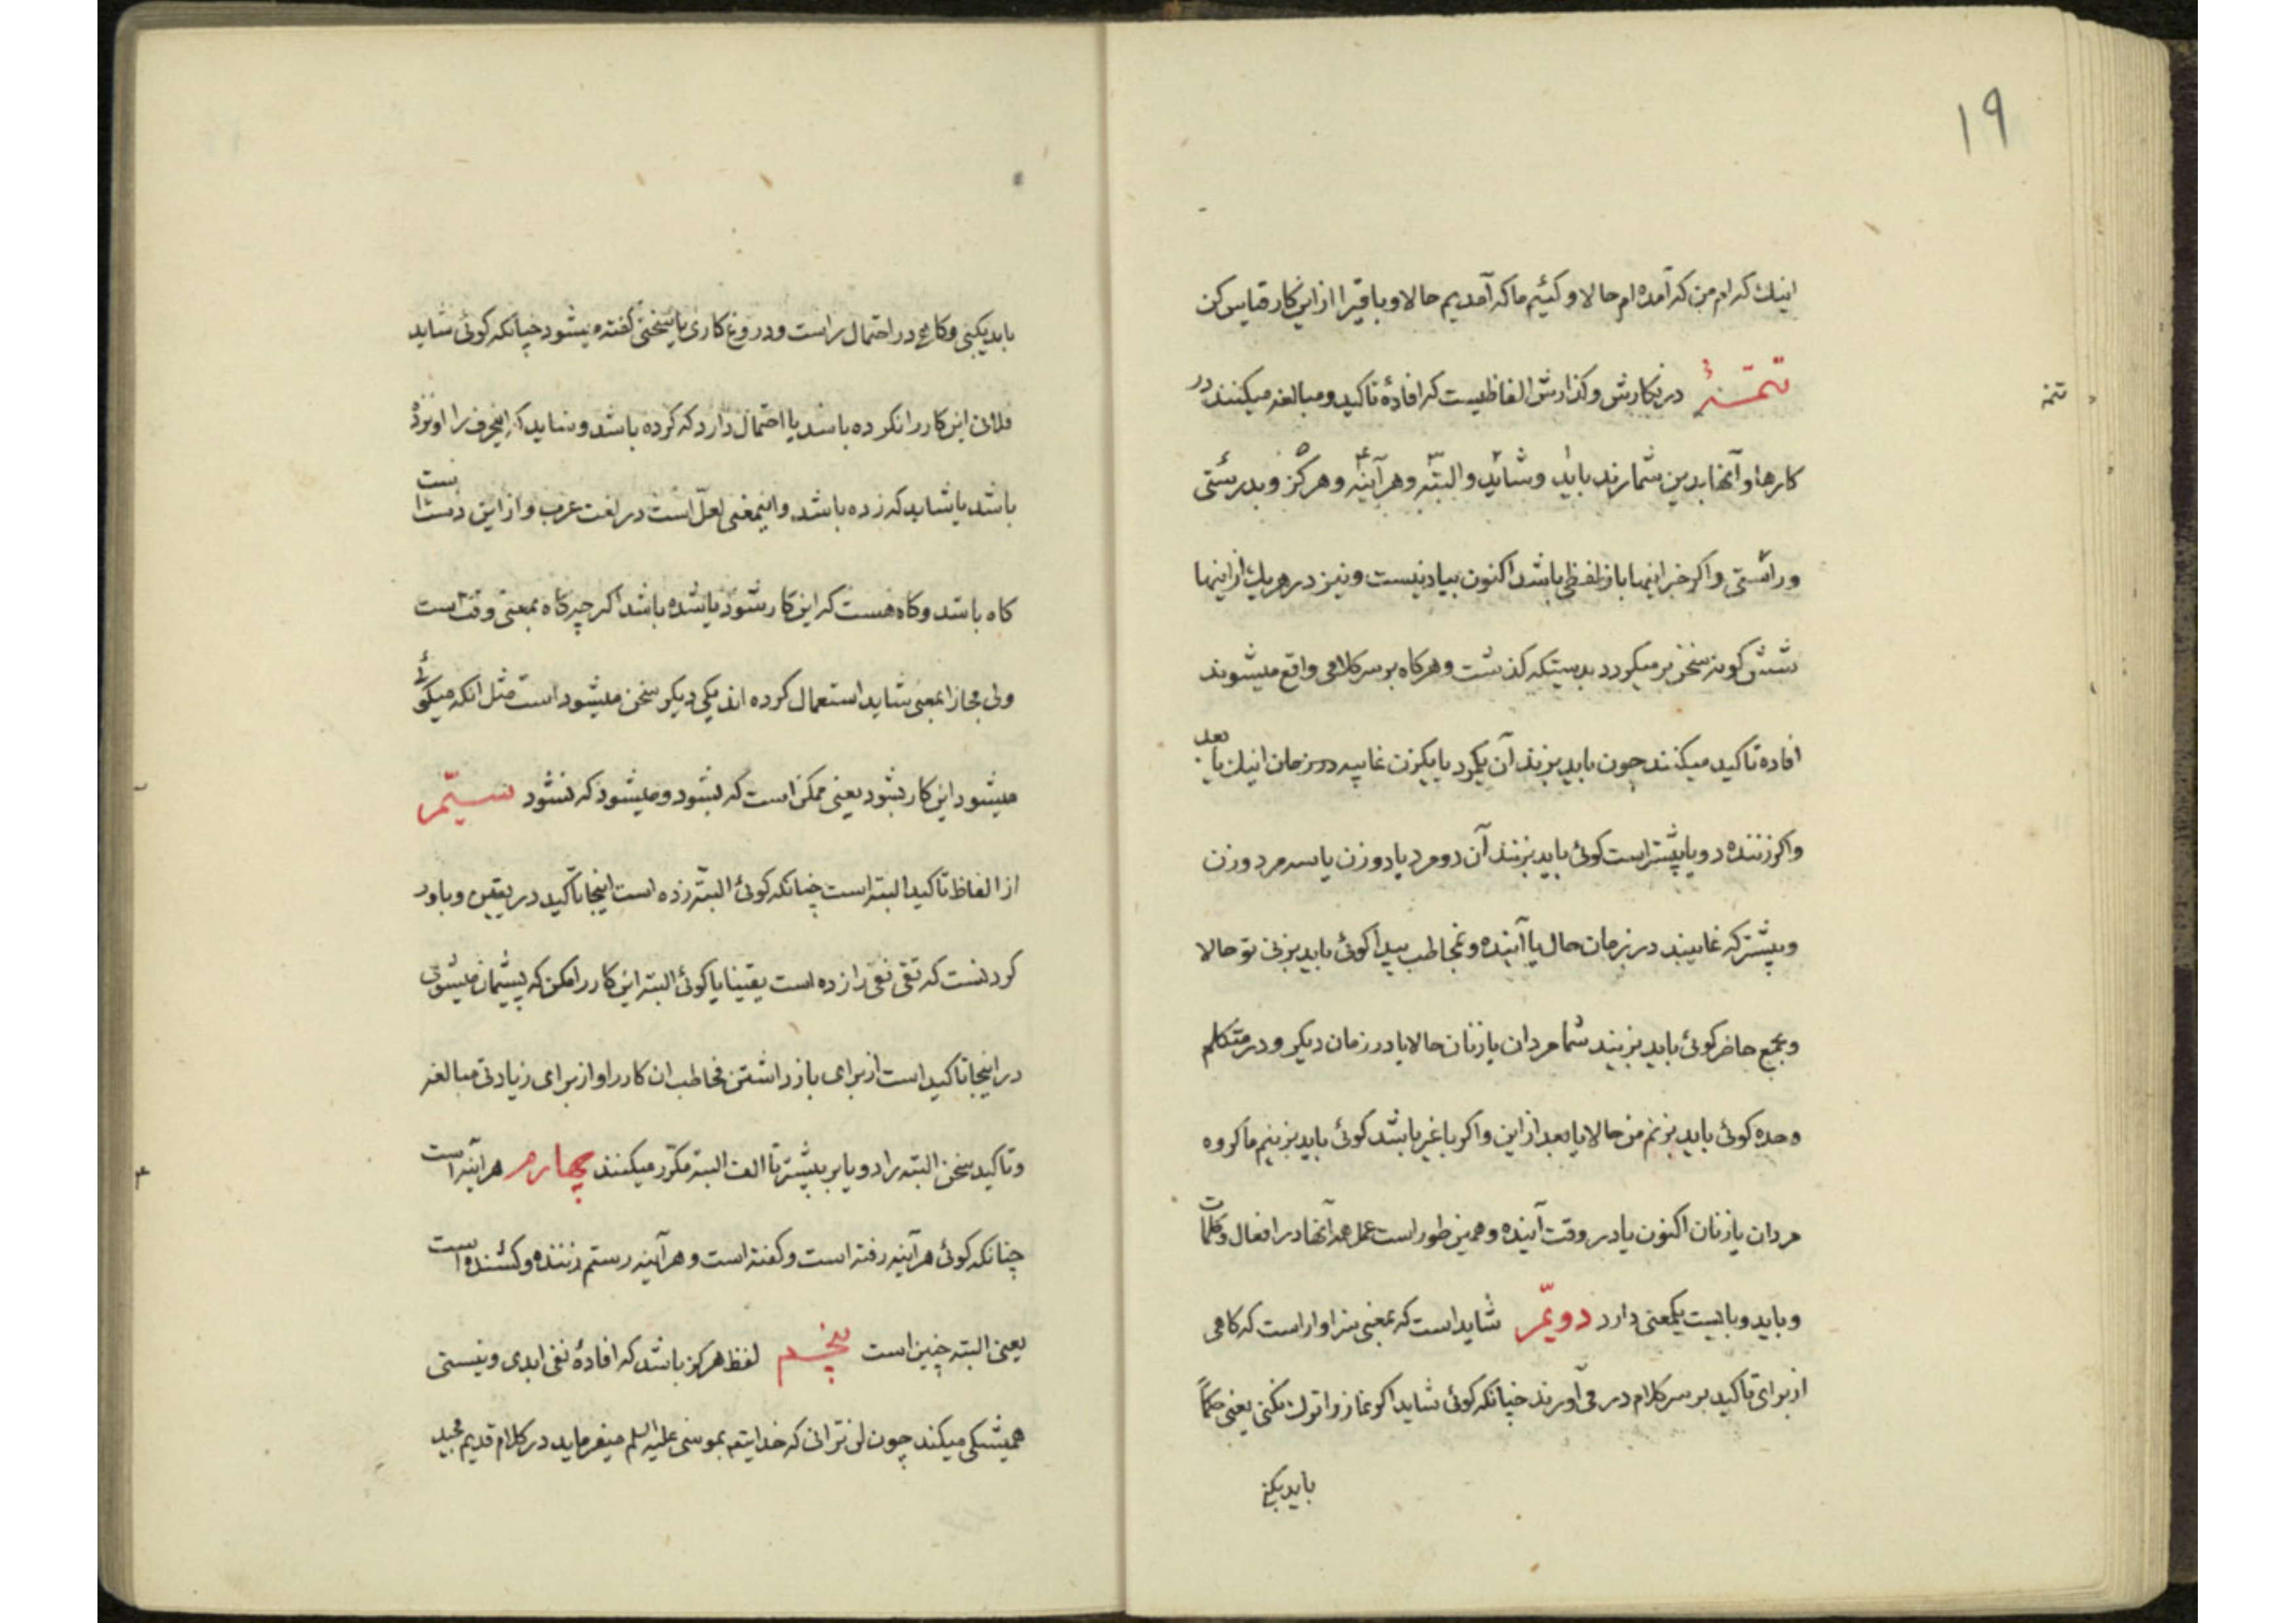 ١٩
اینك که‌ام من که آمده‌ام حالا و کئیم ما که آمدیم حالا و باقی را از این کار قیاس کن
تتمّهٔ در نکارش و کذارش الفاظیست که افادهٔ تاکید و مبالغه میکنند در
تتمه
کارها و آنها بدین شمارند باید ۱ و شاید ۲ و البتّه ۳ و هرآینه ۴ و هرکز ۵ و بدرستی ۶
و راستی ۷ و اکر خبر اینها باز لفظی باشد اکنون بیاد نیست و نیز در هر یك از اینها
شش کونه سخن بر میکردد بدستیکه کذشت و هرکاه بر سر کلامی واقع میشوند
افاده تاکید میکنند چون باید بزند آن یکمرد یا یکزن غایبه در زمان اینك یا بعد
واکر زننده دو یا پیشتر است کوئی باید بزنند آن دو مرد یا دو زن یا سه مرد و زن
و پیشتر که غایبند در زمان حال یا آینده و بمخاطب پیدا کوئی باید بزنی تو حالا
و بجمع حاضر کوئی باید بزنید شما مردان یا زنان حالا یا در زمان دیکر و در متکلم
وحده کوئی باید بزنم من حالا یا بعد از این و اکر با غیر باشد کوئی باید بزنیم ما کروه
مردان یا زنان اکنون یا در وقت آینده و همین طور است عمل همه آنها در افعال و کلمات
و باید و بایست یکمعنی دارد دویّم شاید است که بمعنی سزاوار است که کاهی
از برای تاکید بر سر کلام در می‌آورند چنانکه کوئی شاید اکر نماز را ترك نکنی یعنی حکماً
باید بکنی
باید بکنی و کاهی در احتمال راست و دروغ کاری یا سخنی کفته میشود چنانکه کوئی شاید
فلانی این کار را نکرده باشد یا احتمال دارد که کرده باشد و شاید که اینحرف را او نزده
باشد یا شاید که زده باشد و اینمعنی لعلّ است در لغت عرب و از این دست است
کاه باشد و کاه هست که این کار شود یا شده باشد اکر چه کاه بمعنی وقت است
ولی مجازا بمعنی شاید استعمال کرده‌اند یکی دیکر سخن میشود است مثل انکه میکوئی
میشود این کار بشود یعنی ممکن است که بشود و میشود که نشود سیّم
از الفاظ تاکید البته است چنانکه کوئی البتّه زده است اینجا تاکید در یقین و باور
کردنست که تقی نقی را زده است یقینا یا کوئی البته این کار را مکن که پشیمان میشوی
در اینجا تاکید است از برای باز داشتن مخاطب ان کار را و از برای زیادتی مبالغه
و تاکید سخن البته را دو یا بر بیشتر تا الف البته مکرّر میکنند چهارم هراینه است
۴
چنانکه کوئی هرآینه رفته است و کفته است و هرآینه رستم زننده و کشنده است
یعنی البته چنین است پنجم لفظ هرکز باشد که افادهٔ نفی ابدی و نیستی
همیشکی میکند چون لن ترانی که خدایتعه بموسی علیه السلم میفرماید در کلام قدیم مجید